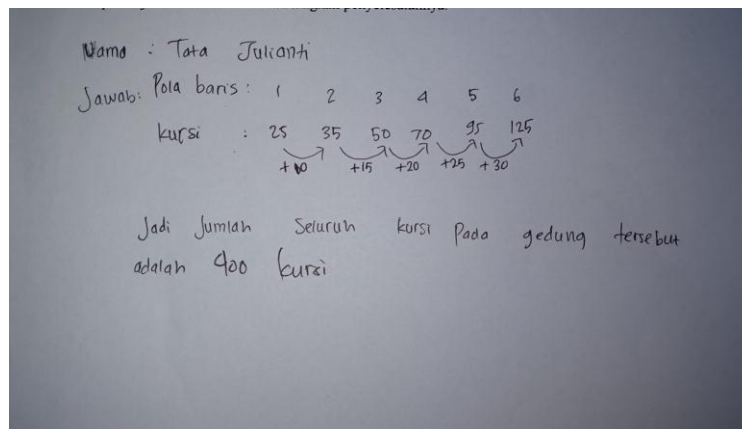 Nama : Tata Julianti
Jawab: Pola baris : 1 2 3 4 5 6
kursi : 25 35 50 70 95 125
+10 +15 +20 +25 +30
Jadi Jumlah Seluruh kursi Pada gedung tersebut
adalah 400 kursi